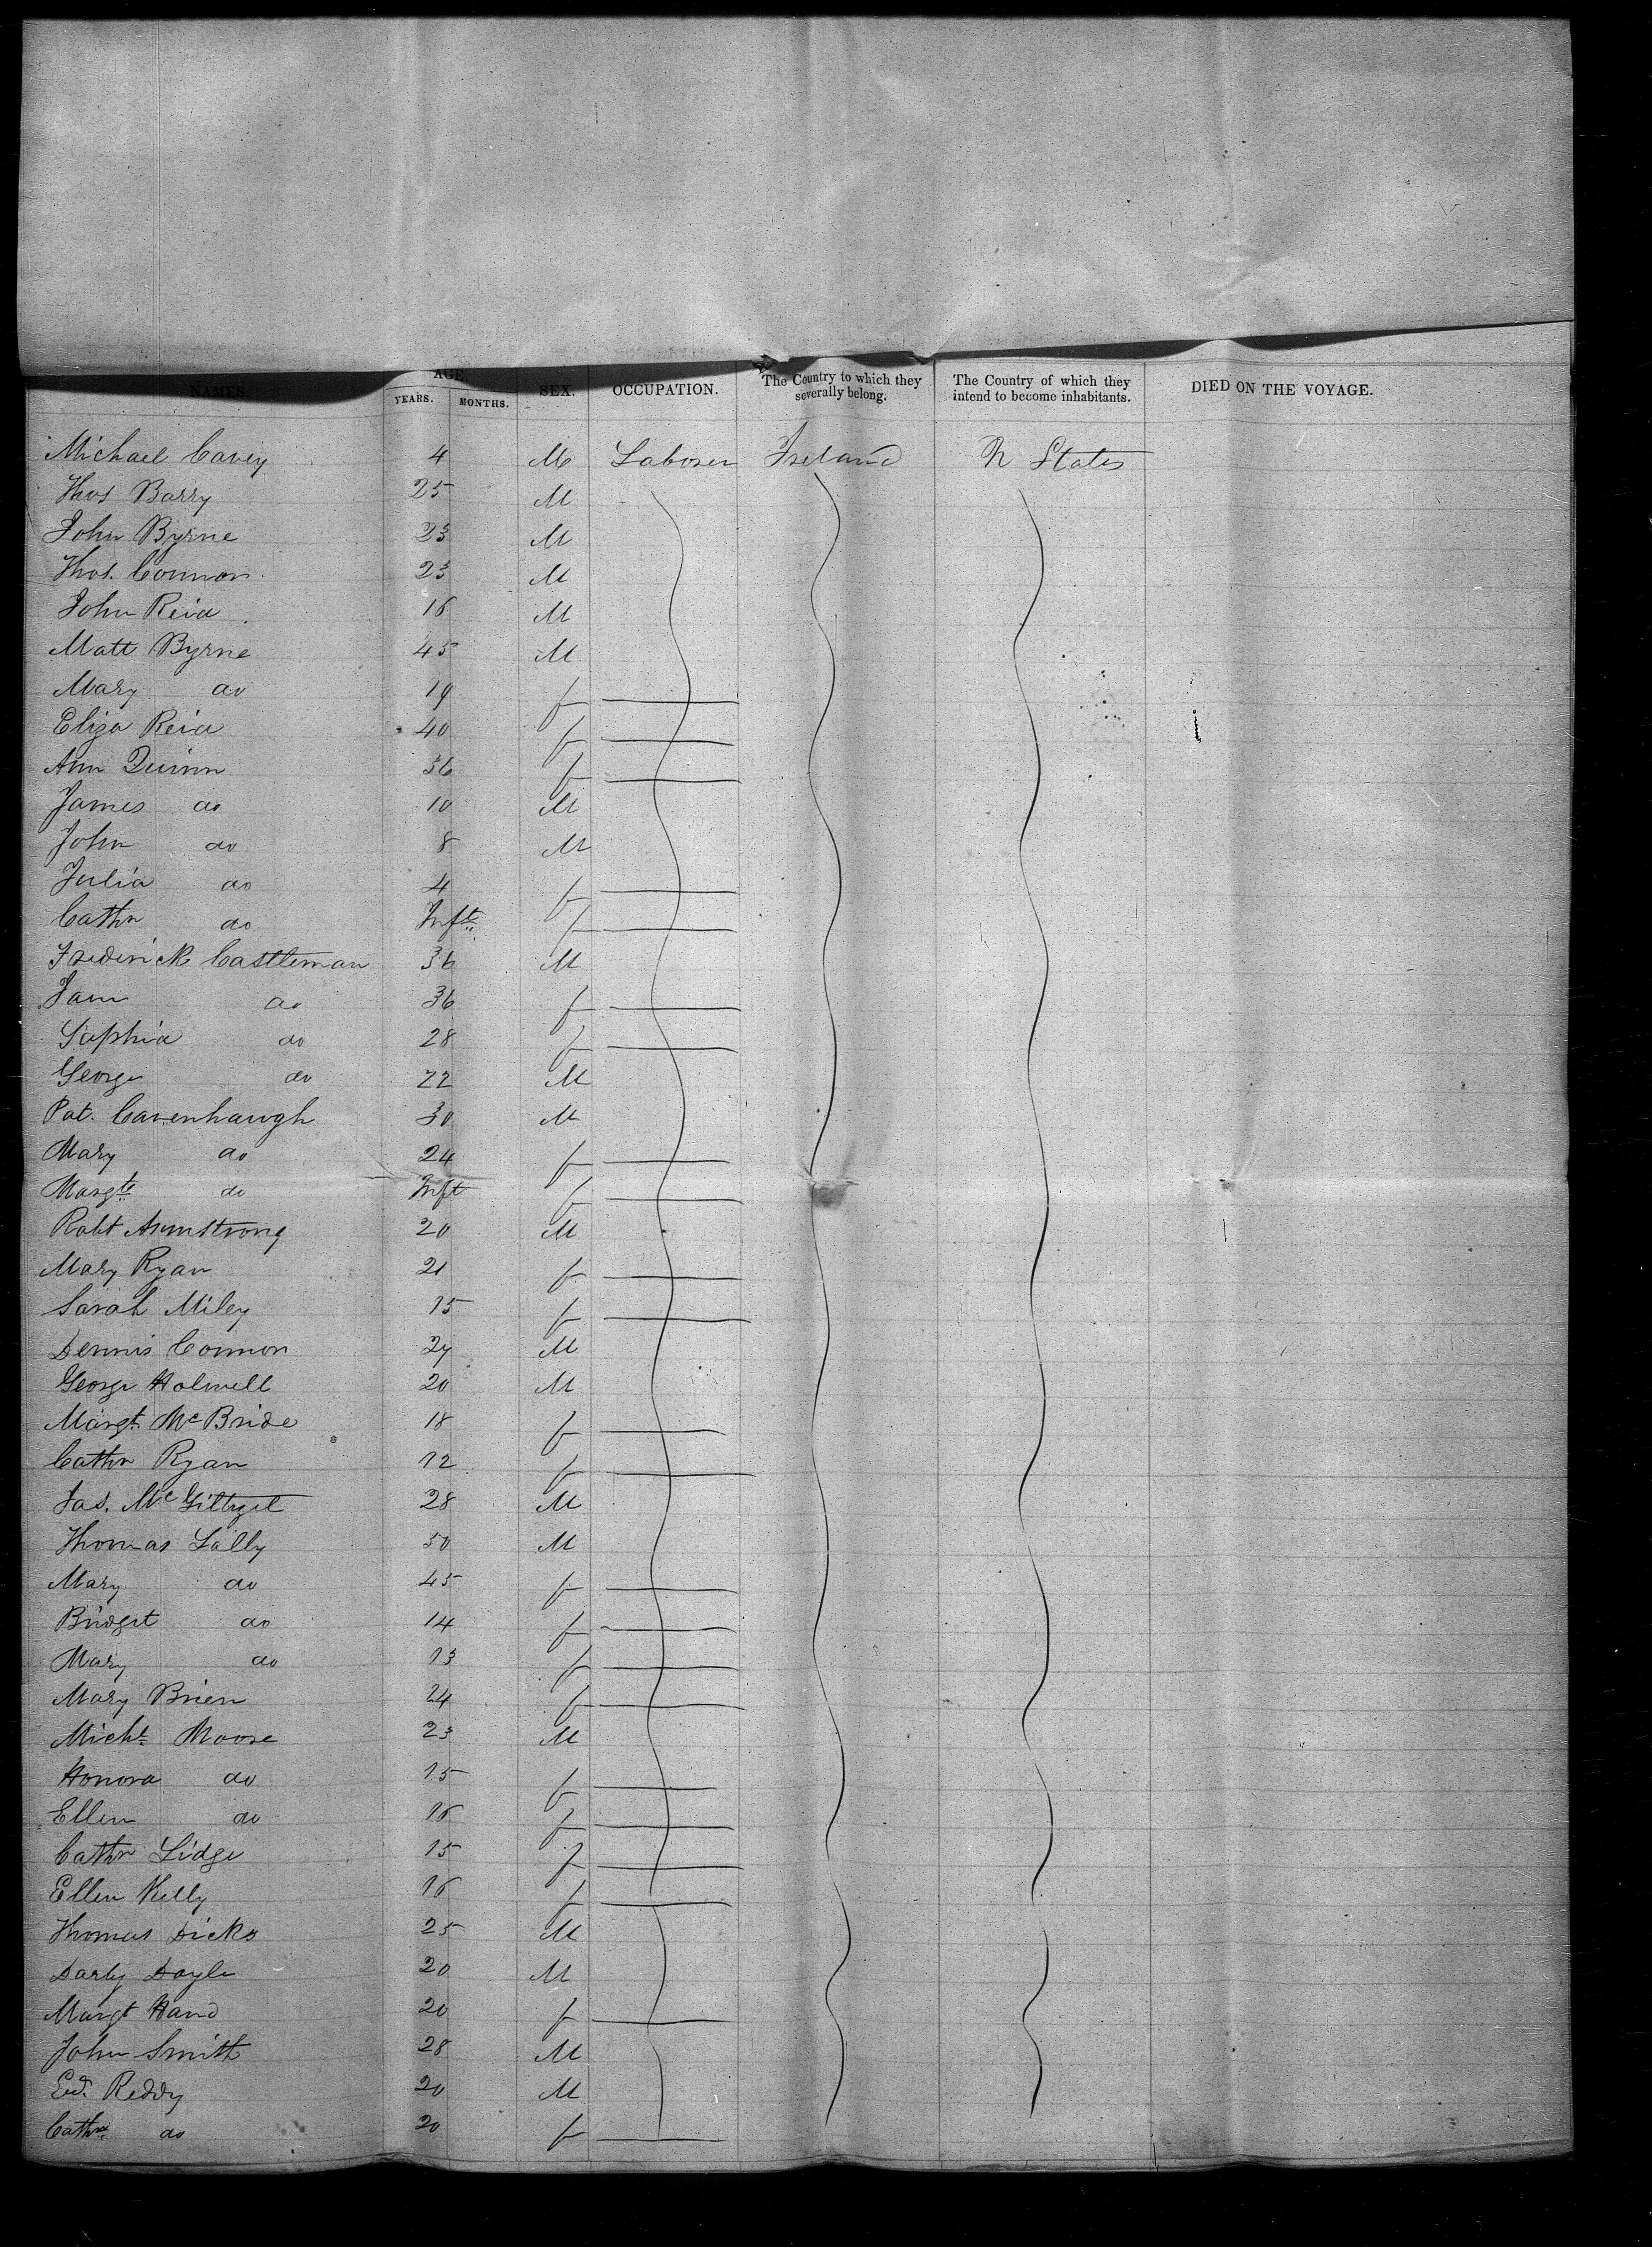 NAMES. AGE. SEX. OCCUPATION. The Country to which they severally belong. The Country of which they intend to become inhabitants. DIED ON THE VOYAGE.
YEARS. MONTHS.
Michael Cavey 4 M Laborer Ireland States
Thos Barry 25 M
John Byrne 23 M
Thos. Connon 23 M
John Reid 16 M
Matt Byrne 45 M
Mary do 19 f
Eliza Reid 40 f
Ann Quinn 36 f
James do 10 M
John do 8 M
Julia do 4 f
Cathn do Inft f
Frederick Castleman 36 M
Jane do 36 f
Saphia do 28 f
George do 22 M
Pat. Cavenhaugh 30 M
Mary do 24 f
Margt do Inft f
Robt Armstrong 20 M
Mary Ryan 21 f
Sarah Miley 15 f
Dennis Connon 27 M
George Holwell 20 M
Margt. McBride 18 f
Cathn Ryan 12 f
Jas. 28 M
Thomas Lally 50 M
Mary do 45 f
Bridget do 14 f
Mary do 13 f
Mary Brien 24 f
Michl. Moore 23 M
Honora do 15 f
Ellen do 16 f
Cathn Lidge 15 f
Ellen Kelly 16 f
Thomas Dicks 25 M
Darly Doyle 20 M
Margt Hand 20 f
John Smith 28 M
Ed. Reddy 20 M
Cathn do 20 f